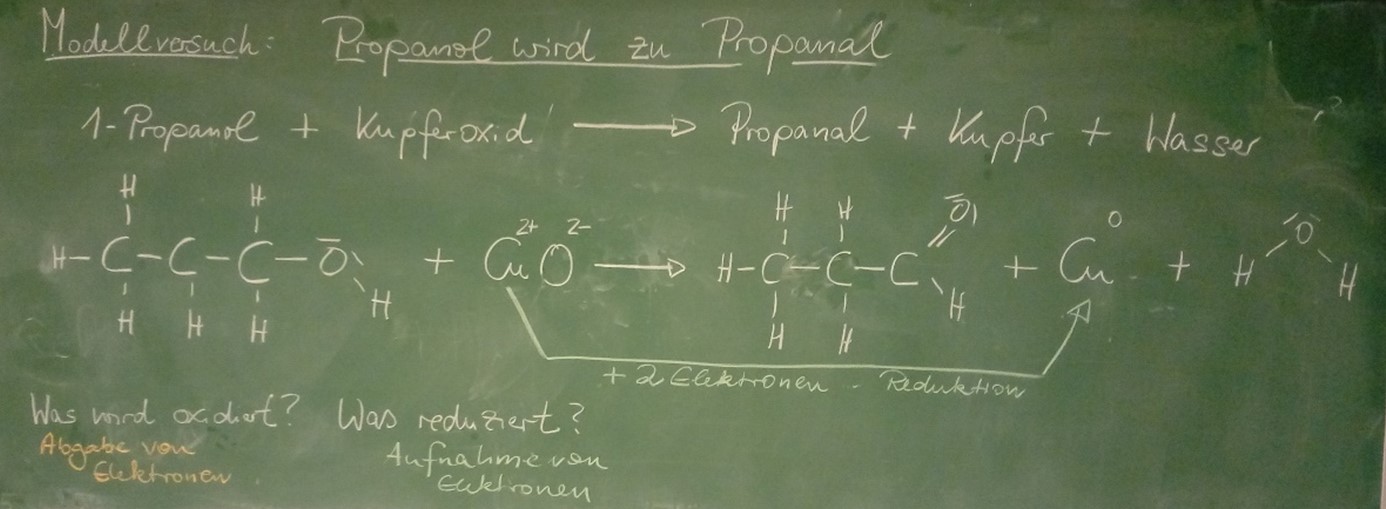 Modellversuch: Propanol wird zu Propanal
1-Propanol + Kupferoxid → Propanal + Kupfer + Wasser
H H H H O
H-C-C-C-O + Cu²⁺O²⁻ → H-C-C-C + Cu⁰ + H O H
H H H H H H H
+ 2 Elektronen - Reduktion
Was wird oxidiert? Was reduziert?
Abgabe von Elektronen
Aufnahme von Elektronen